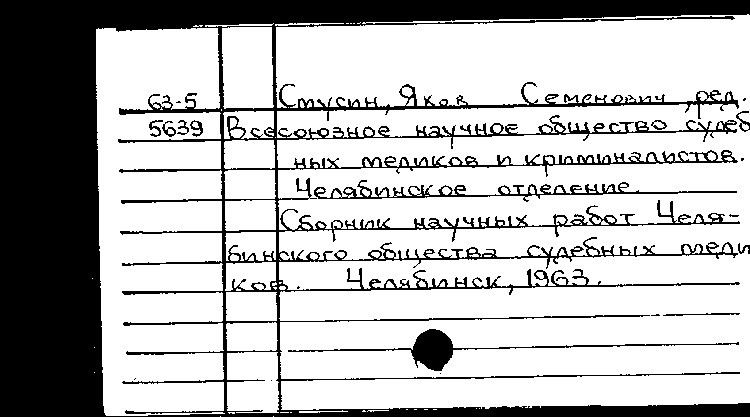 63-5 Стусин, Яков Семенович, ред.
5639 Всесоюзное научное общество судеб
ных медиков и криминалистов.
Челябинское отделение.
Сборник научных работ Челя-
бинского общества судебных меди
ков. Челябинск, 1963.